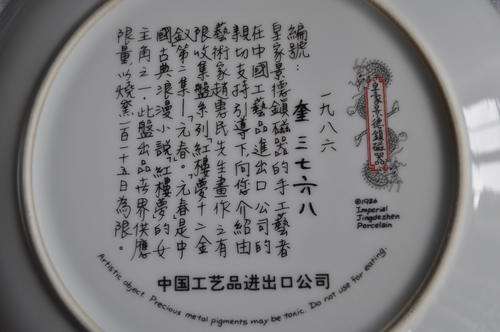 編號：
一九八六
奎 三七六八
皇家景德鎮磁器的手工藝者
在中國工藝品進出口公司的
親切支持引導下,向您介紹由
藝術家趙惠民先生畫作之有
限收集盤系列「紅樓夢」十二金
釵第二集—「元春」。元春是中
國古典浪漫小說「紅樓夢」的女
主角之一，此盤出品世界供應
限量以燒窯一百一十五日為限。
皇家景德鎮磁器
©1986
Imperial
Jingdezhen
Porcelain
中国工艺品进出口公司
Artistic object. Precious metal pigments may be toxic. Do not use for eating.